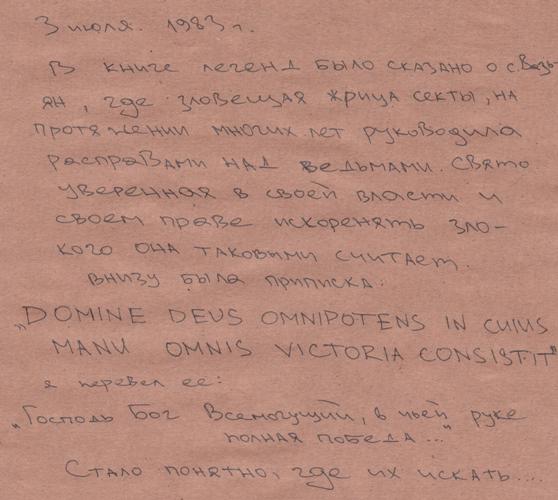 3 июля. 1983 г.
В книге легенд было сказано о с. Ведь-
ян, где зловещая жрица секты, на
протяжении многих лет руководила
расправами над ведьмами. Свято
уверенная в своей власти и
своем праве искоренять зло-
кого она таковыми считает.
внизу была приписка:
„DOMINE DEUS OMNIPOTENS IN CUIUS
MANU OMNIS VICTORIA CONSISTIT"
я перевел ее:
„Господь Бог Всемогущий, в чьей руке
полная победа..."
Стало понятно, где их искать....